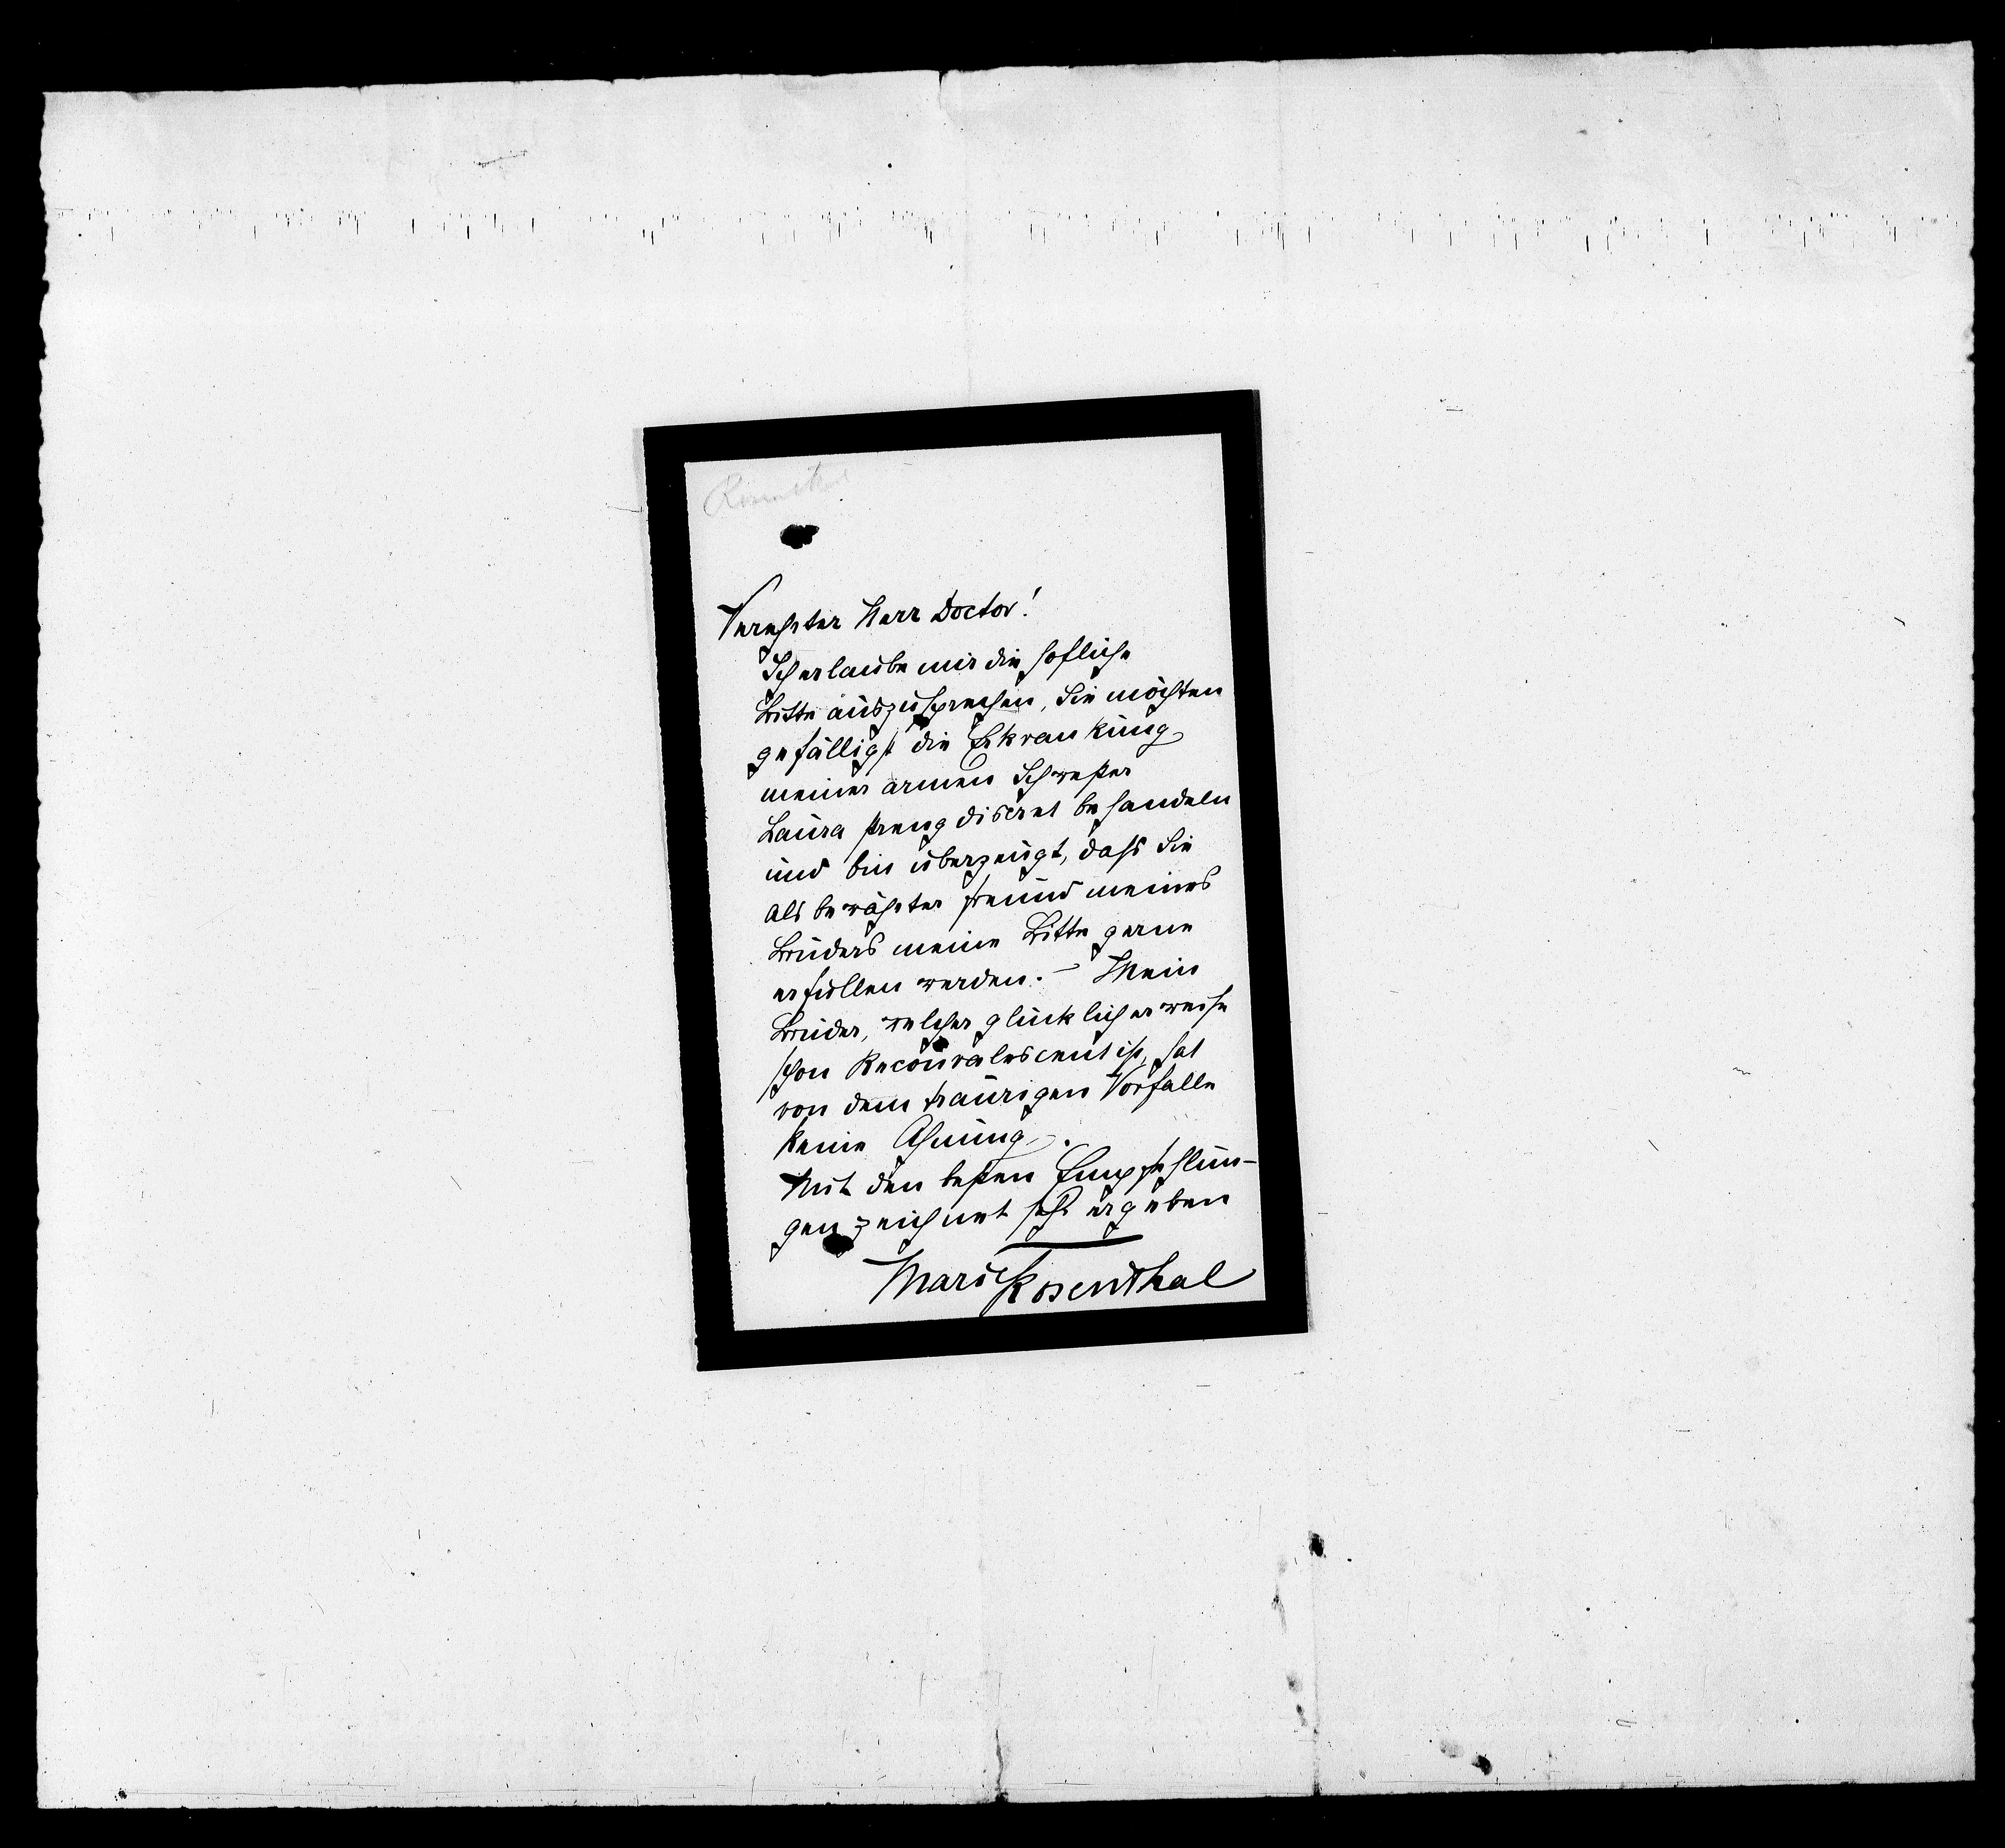 Verehrter Herr Doctor!
Ich erlaube mir die höfliche
Bitte auszusprechen, Sie möchten
gefälligst die Erkrankung
meiner armen Schwester
Laura streng discret behandeln
und bin überzeugt, dass Sie
als bewährter Freund meines
Bruders meine Bitte gerne
erfüllen werden. – Mein
Bruder, welcher glücklicherweise
schon Reconvalescent ist, hat
von dem traurigen Vorfalle
keine Ahnung.
Mit den besten Empfehlun-
gen zeichnet sehr ergeben
Marie Rosenthal